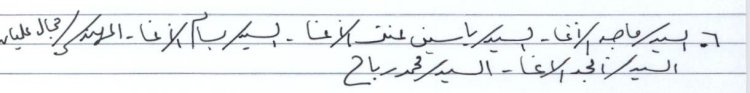 ٦. السيد/ ماجد الأغا - السيد/ ياسين عنتر الأغا - السيد/ بسام الأغا - المهندس/ جمال عليان
السيد/ أمجد الأغا - السيد/ محمد رباح